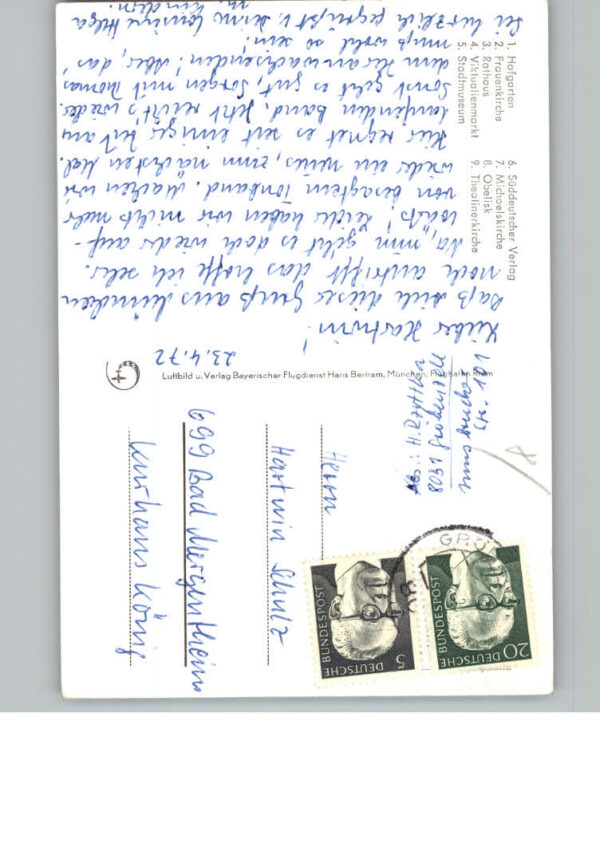 1. Hofgarten
2. Frauenkirche
3. Rathaus
4. Viktualienmarkt
5. Stadtmuseum
6. Süddeutscher Verlag
7. Michaelskirche
8. Obelisk
9. Theatinerkirche
23.4.72
Lieber Hartwin!
Daß Dich dieser Gruß aus München
noch antrifft das hoffe ich sehr.
Na, nun geht es doch wieder auf-
wärts! Leider haben wir nichts mehr
von besagtem Tonband. Machen wir
wieder ein neues, zum nächsten Mal.
Hier regnet es seit einiger Zeit am
laufenden Band. Jetzt reicht's wieder.
Sonst geht es gut, Sorgen mit Thomas
dem Heranwachsenden! Aber, das
muß wohl so sein!
Sei herzlich gegrüßt v. Deiner Cousine Helga
Luftbild u. Verlag Bayerischer Flugdienst Hans Bertram, München, Flughafen Riem
Abs.: H.
8031
DEUTSCHE BUNDESPOST
5
DEUTSCHE BUNDESPOST
20
Herrn
Hartwin Schulz
699 Bad Mergentheim
Kurhaus König